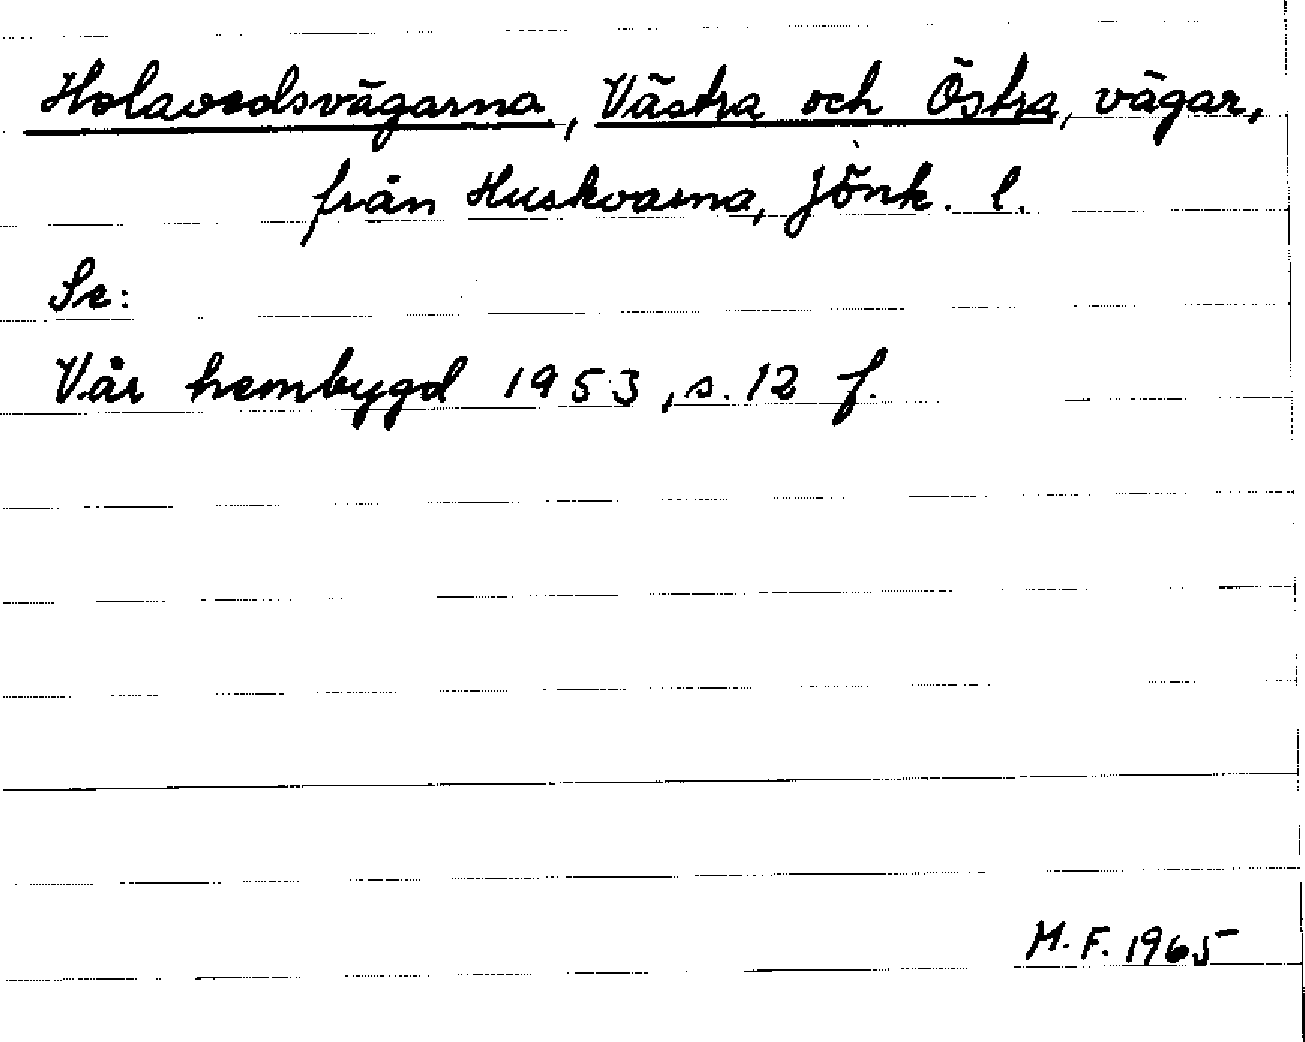 Holavedsvägarna, Västra och Östra, vägar,
från Huskvarna, Jönk. l.
Se:
Vår hembygd 1953, s. 12 f.
M. F. 1965